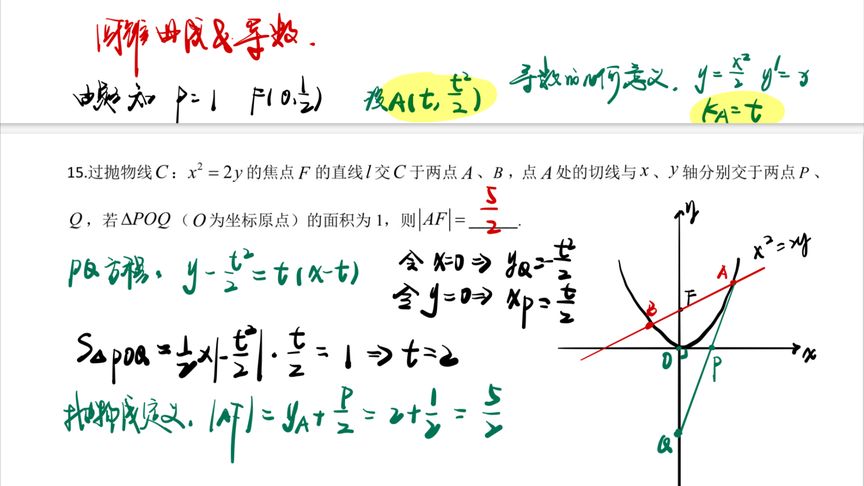 圆锥曲线&导数.
由题知 P=1 F(0,1/2) 设A(t, t²/2) 导数的几何意义. y=x²/2 y'=x
K_A=t
15.过抛物线C: x²=2y的焦点F的直线l交C于两点A、B,点A处的切线与x、y轴分别交于两点P、
Q,若ΔPOQ(O为坐标原点)的面积为1,则|AF|=5/2.
PQ方程. y-t²/2=t(x-t) 令x=0⇒y_Q=-t²/2
令y=0⇒x_P=t/2
S△POQ=1/2×|-t²/2|·t/2=1⇒t=2
抛物线定义. |AF|=y_A+P/2=2+1/2=5/2
y
x²=2y
A
F
B
O
P
x
Q